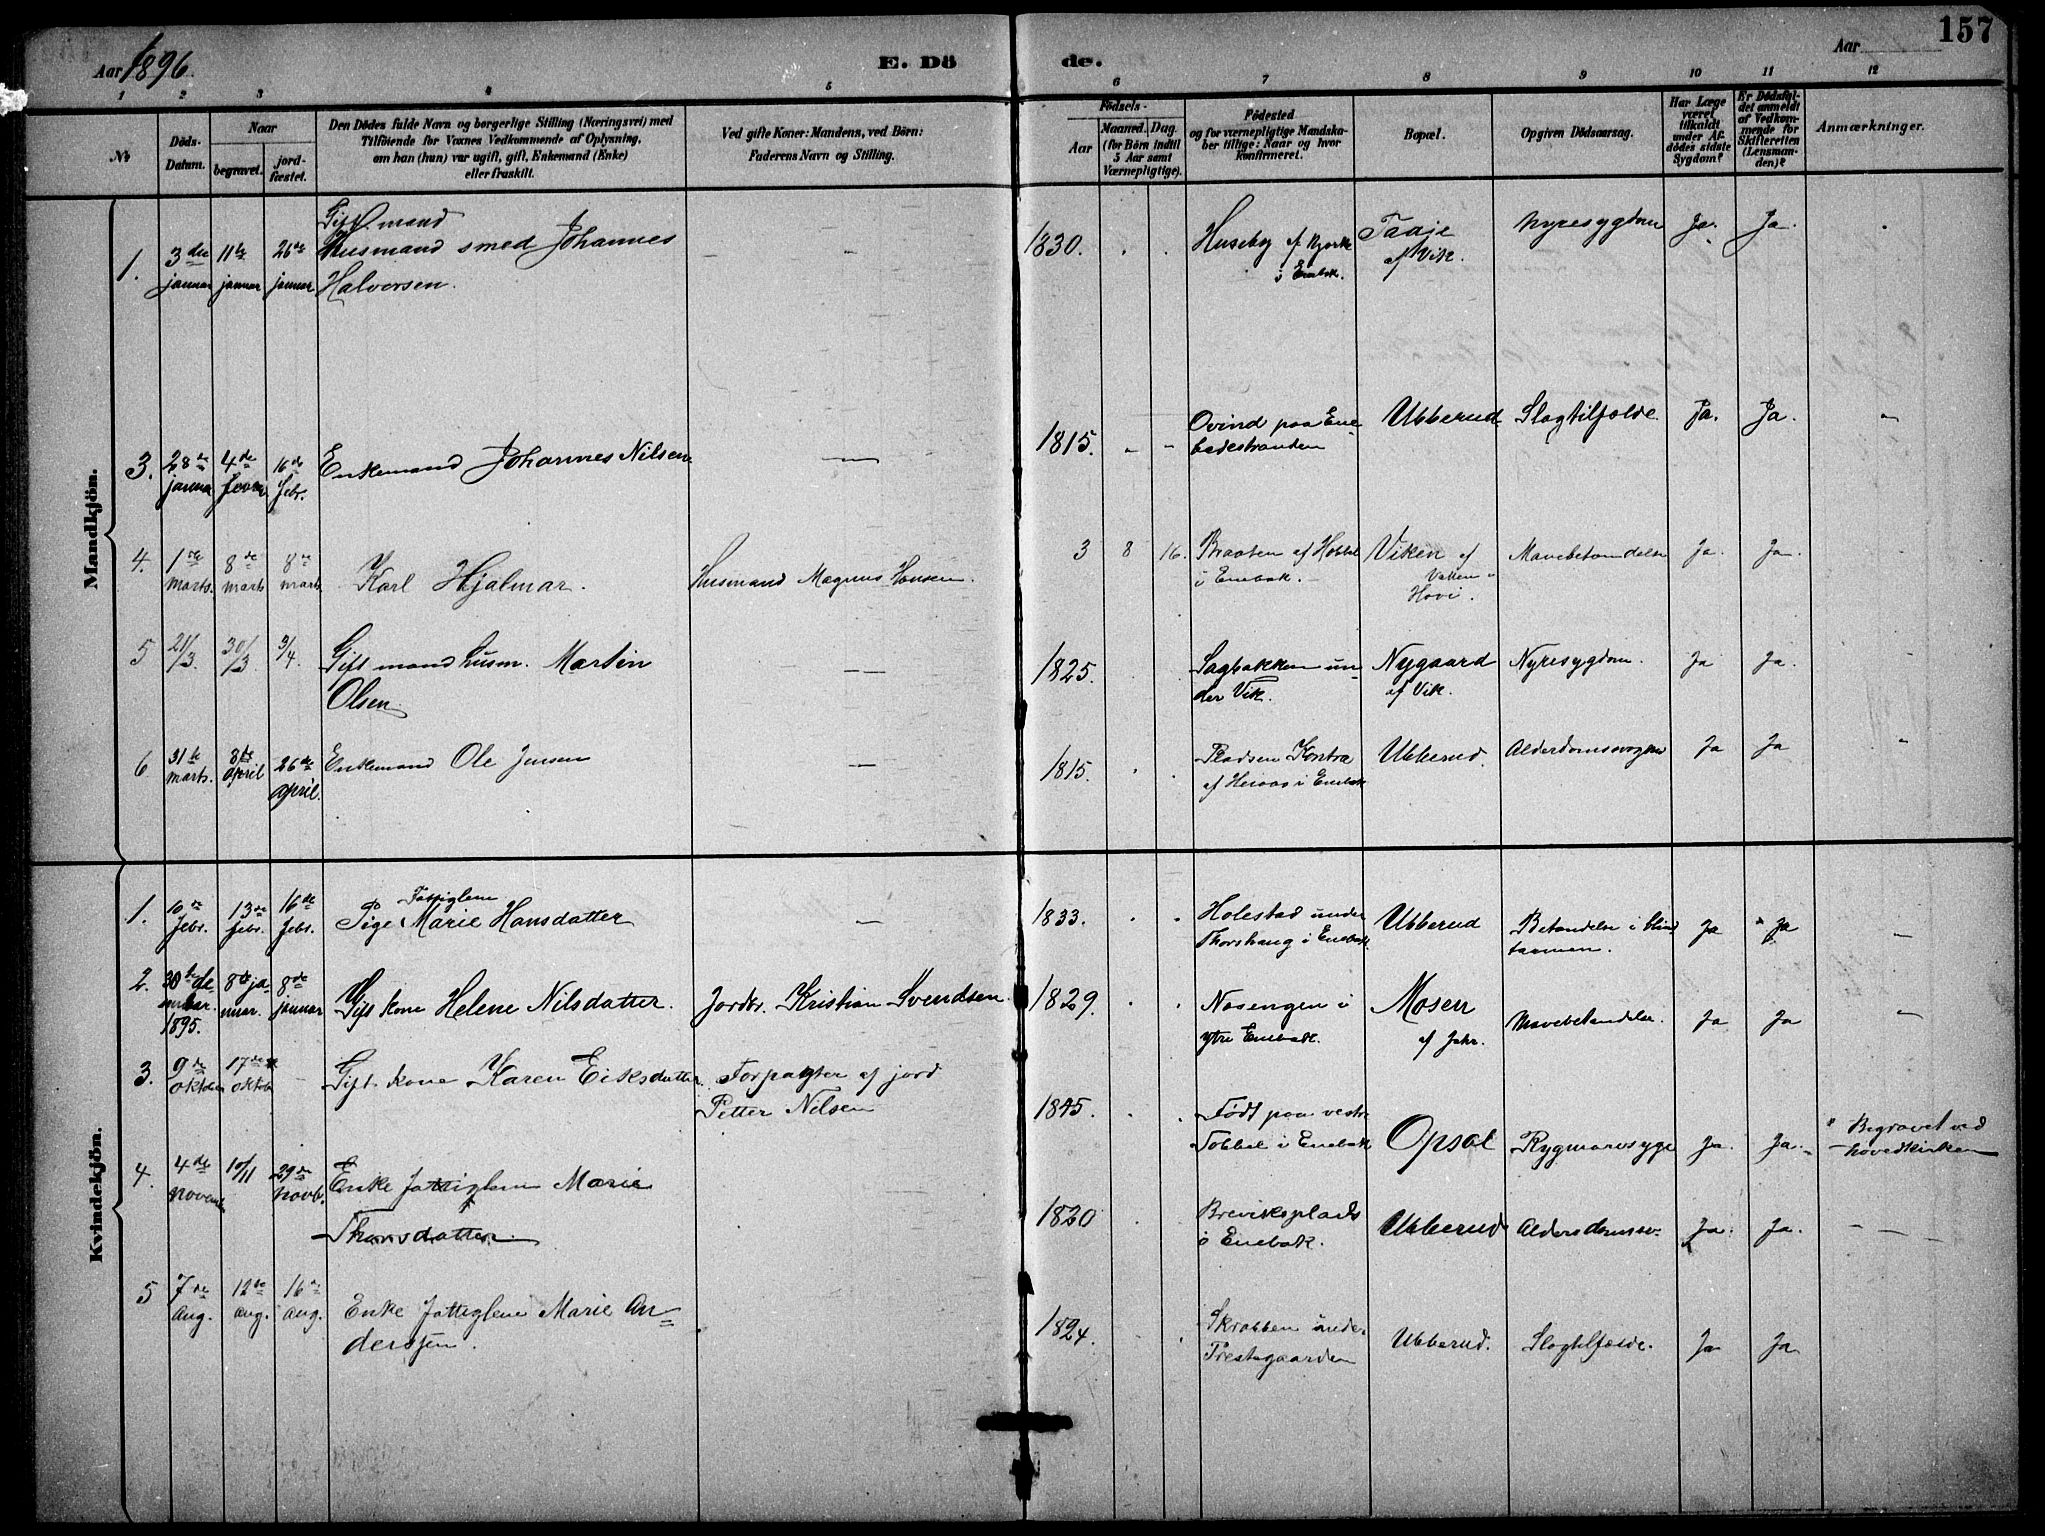 Aar 1896.
E. Dö
de.
Aar
157
1 2 3 4 5 6 7 8 9 10 11 12
No
Döds-
Datum.
Naar
begravet.
jord-
fæstet.
Den Dödes fulde Navn og borgerlige Stilling (Næringsvei) med
Tilföiende for Voxnes Vedkommende af Oplysning,
om han (hun) var ugift, gift, Enkemand (Enke)
eller fraskilt.
Ved gifte Koner: Mandens, ved Börn:
Faderens Navn og Stilling.
Födsels-
Aar
Maaned. Dag.
(for Börn indtil
5 Aar samt
Værnepligtige).
Födested
og for værnepligtige Mandska-
ber tillige: Naar og hvor
konfirmeret.
Bopæl.
Opgiven Dödsaarsag.
Har Læge
været
tilkaldt
under Af-
dödes sidste
Sygdom?
Er Dödsfal-
det anmeldt
af Vedkom-
mende for
Skifteretten
(Lensman-
den)?
Anmærkninger.
Mandkjön.
Gift mand
1. 3die 11te 26de Husmand smed Johannes — 1830. Huseby af Kjerke Taaje Nyresygdom Ja. Ja.
januar januar januar Halvorsen. i Enebak. af Vik.
3. 28de 4de 16de Enkemand Johannes Nilsen — 1815. Ovind paa Ene- Ubberud Slagtilfælde. Ja. Ja.
januar febr. bakstranden
4. 1ste 8de 8de Karl Hjalmar. Husmand Magnus Hansen. 3 8 16. Braaten af Hobbel Viken af Mavebetændelse Ja. Ja.
marts. marts marts i Enebak. Hovi.
5 21/3. 30/3 3/4. Gift mand husm. Martin — 1825. Sagbakken un- Nygaard Nyresygdom. Ja Ja.
Olsen der Vik. af Vik.
6 31te 8de 26de Enkemand Ole Jensen — 1815. Pladsen Kontra Ubberud. Ja Ja
marts. april april. i Enebak
Kvindekjön.
Fattiglem
1. 10de 13de 16de Pige Marie Hansdatter — 1833. Holestad under Ubberud Betændelse i blind Ja Ja —
febr. febr. febr. Thorshaug i Enebak tarmen.
2. 30te de- 8de ja- 8de Gift kone Helene Nilsdatter. Jordbr. Kristian Svendsen. 1829. Nosengen i Mosen Mavebetændelse. Ja Ja
cember nuar. januar ytre Enebak. af Jahr.
1895.
3. 9de 17de Gift kone Karen Eiksdatter Forpagter af jord 1845.
oktober oktober Petter Nilsen
Født paa vestre Opsal Rygmarvssyge Ja. Ja. Begravet ved
Tobbel i Enebak hovedkirken
4. 4de 10/11 29de Enke fattiglem Marie 1820 Breviksplads Ubberud Aldersdomssv. Ja. Ja. —
novem novb. Thorsdatter. i Enebak.
5 7de 12de 16de Enke fattiglem Marie An- 1824. Skrabben under Ubberud. Slagtilfælde. Ja Ja
aug. aug. aug. dersen. Prestegaarden